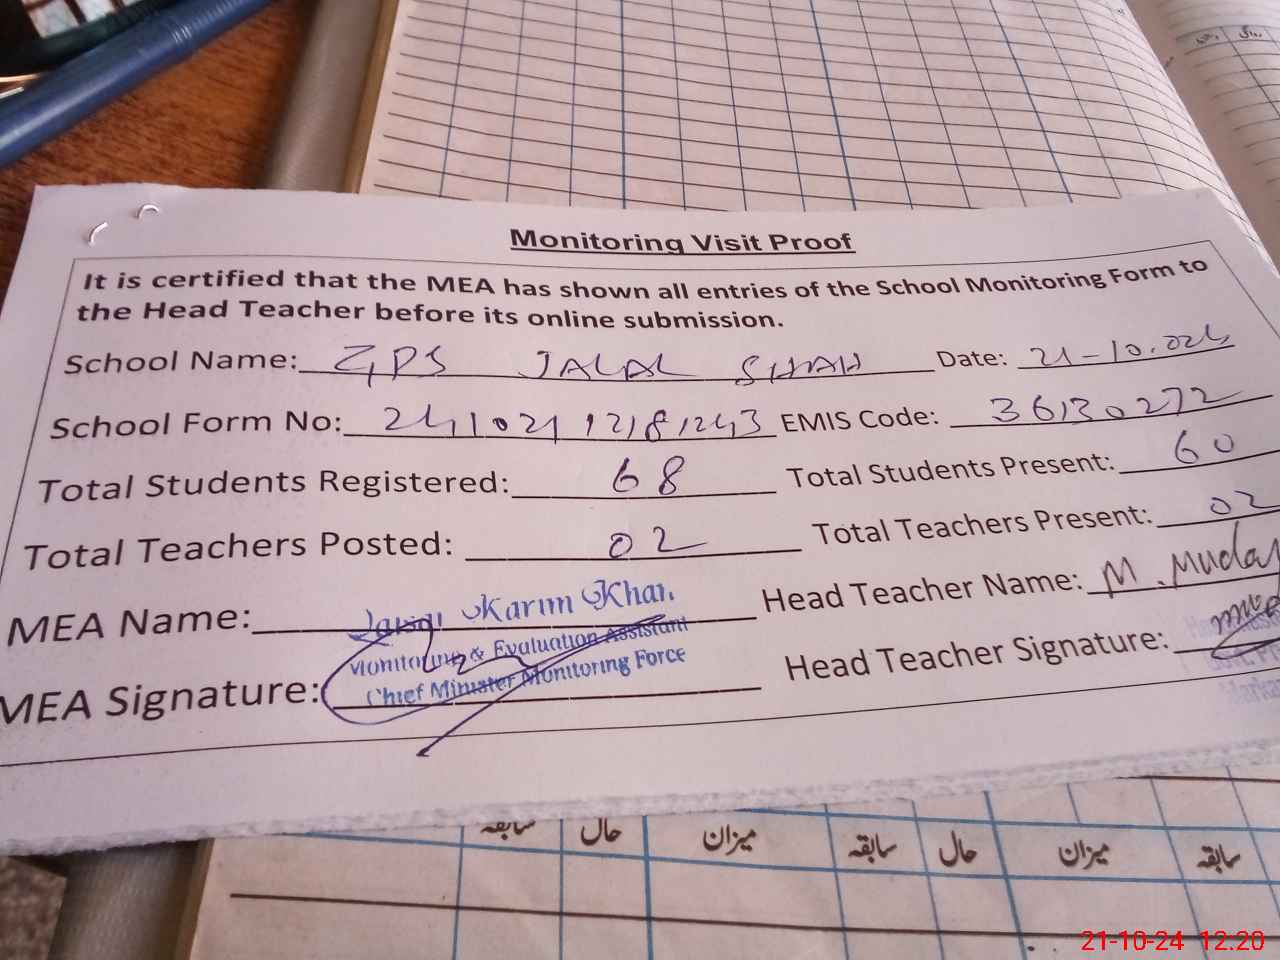 Monitoring Visit Proof
It is certified that the MEA has shown all entries of the School Monitoring Form to
the Head Teacher before its online submission.
School Name: GPS JALAL SHAH Date: 21-10.024
School Form No: EMIS Code: 36130272
Total Students Registered: 68 Total Students Present: 60
Total Teachers Posted: 02 Total Teachers Present: 02
MEA Name: Karim Khan Head Teacher Name: M.
Monitoring & Evaluation Assistant
MEA Signature: Chief Minister Monitoring Force Head Teacher Signature:
سابقہ حال میزان سابقہ حال میزان سابقہ
21-10-24 12:20